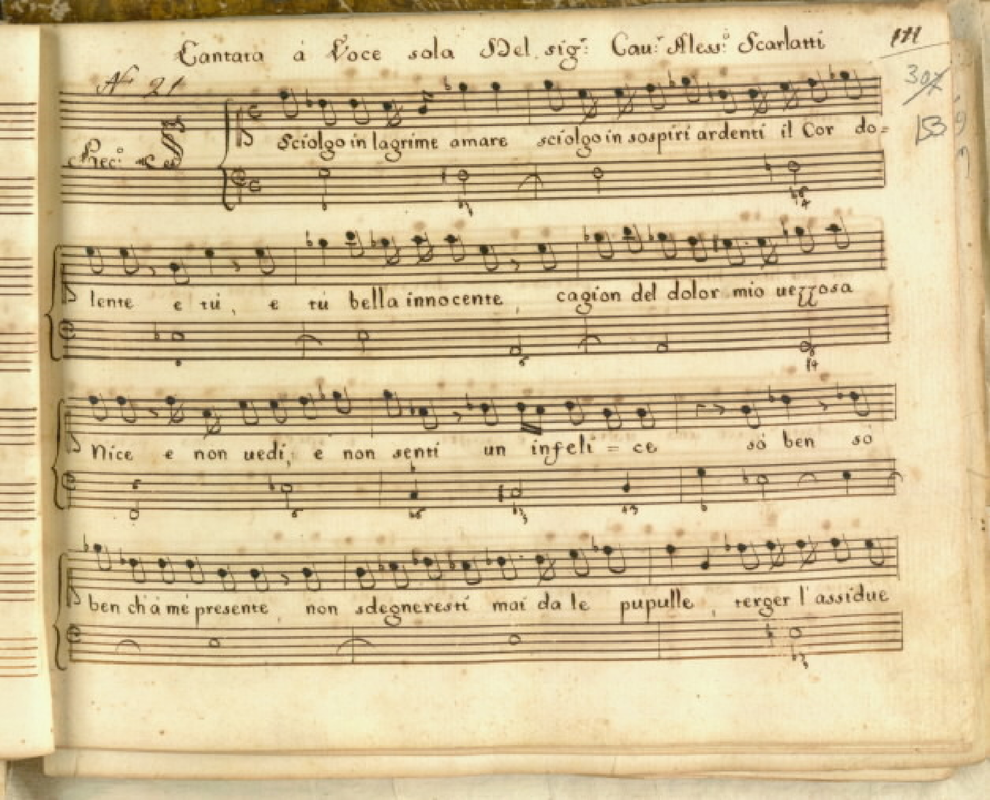 Cantata à Voce sola Del sigr. Cau.r Aless.o Scarlatti
111
N 21
307
153
Rec.o
Sciolgo in lagrime amare sciolgo in sospiri ardenti il Cor do=
lente e tù, e tù bella innocente cagion del dolor mio uezzosa
Nice e non uedi, e non senti un infeli=ce sò ben sò
ben ch'à mè presente non sdegneresti mai da le pupulle terger l'assidue